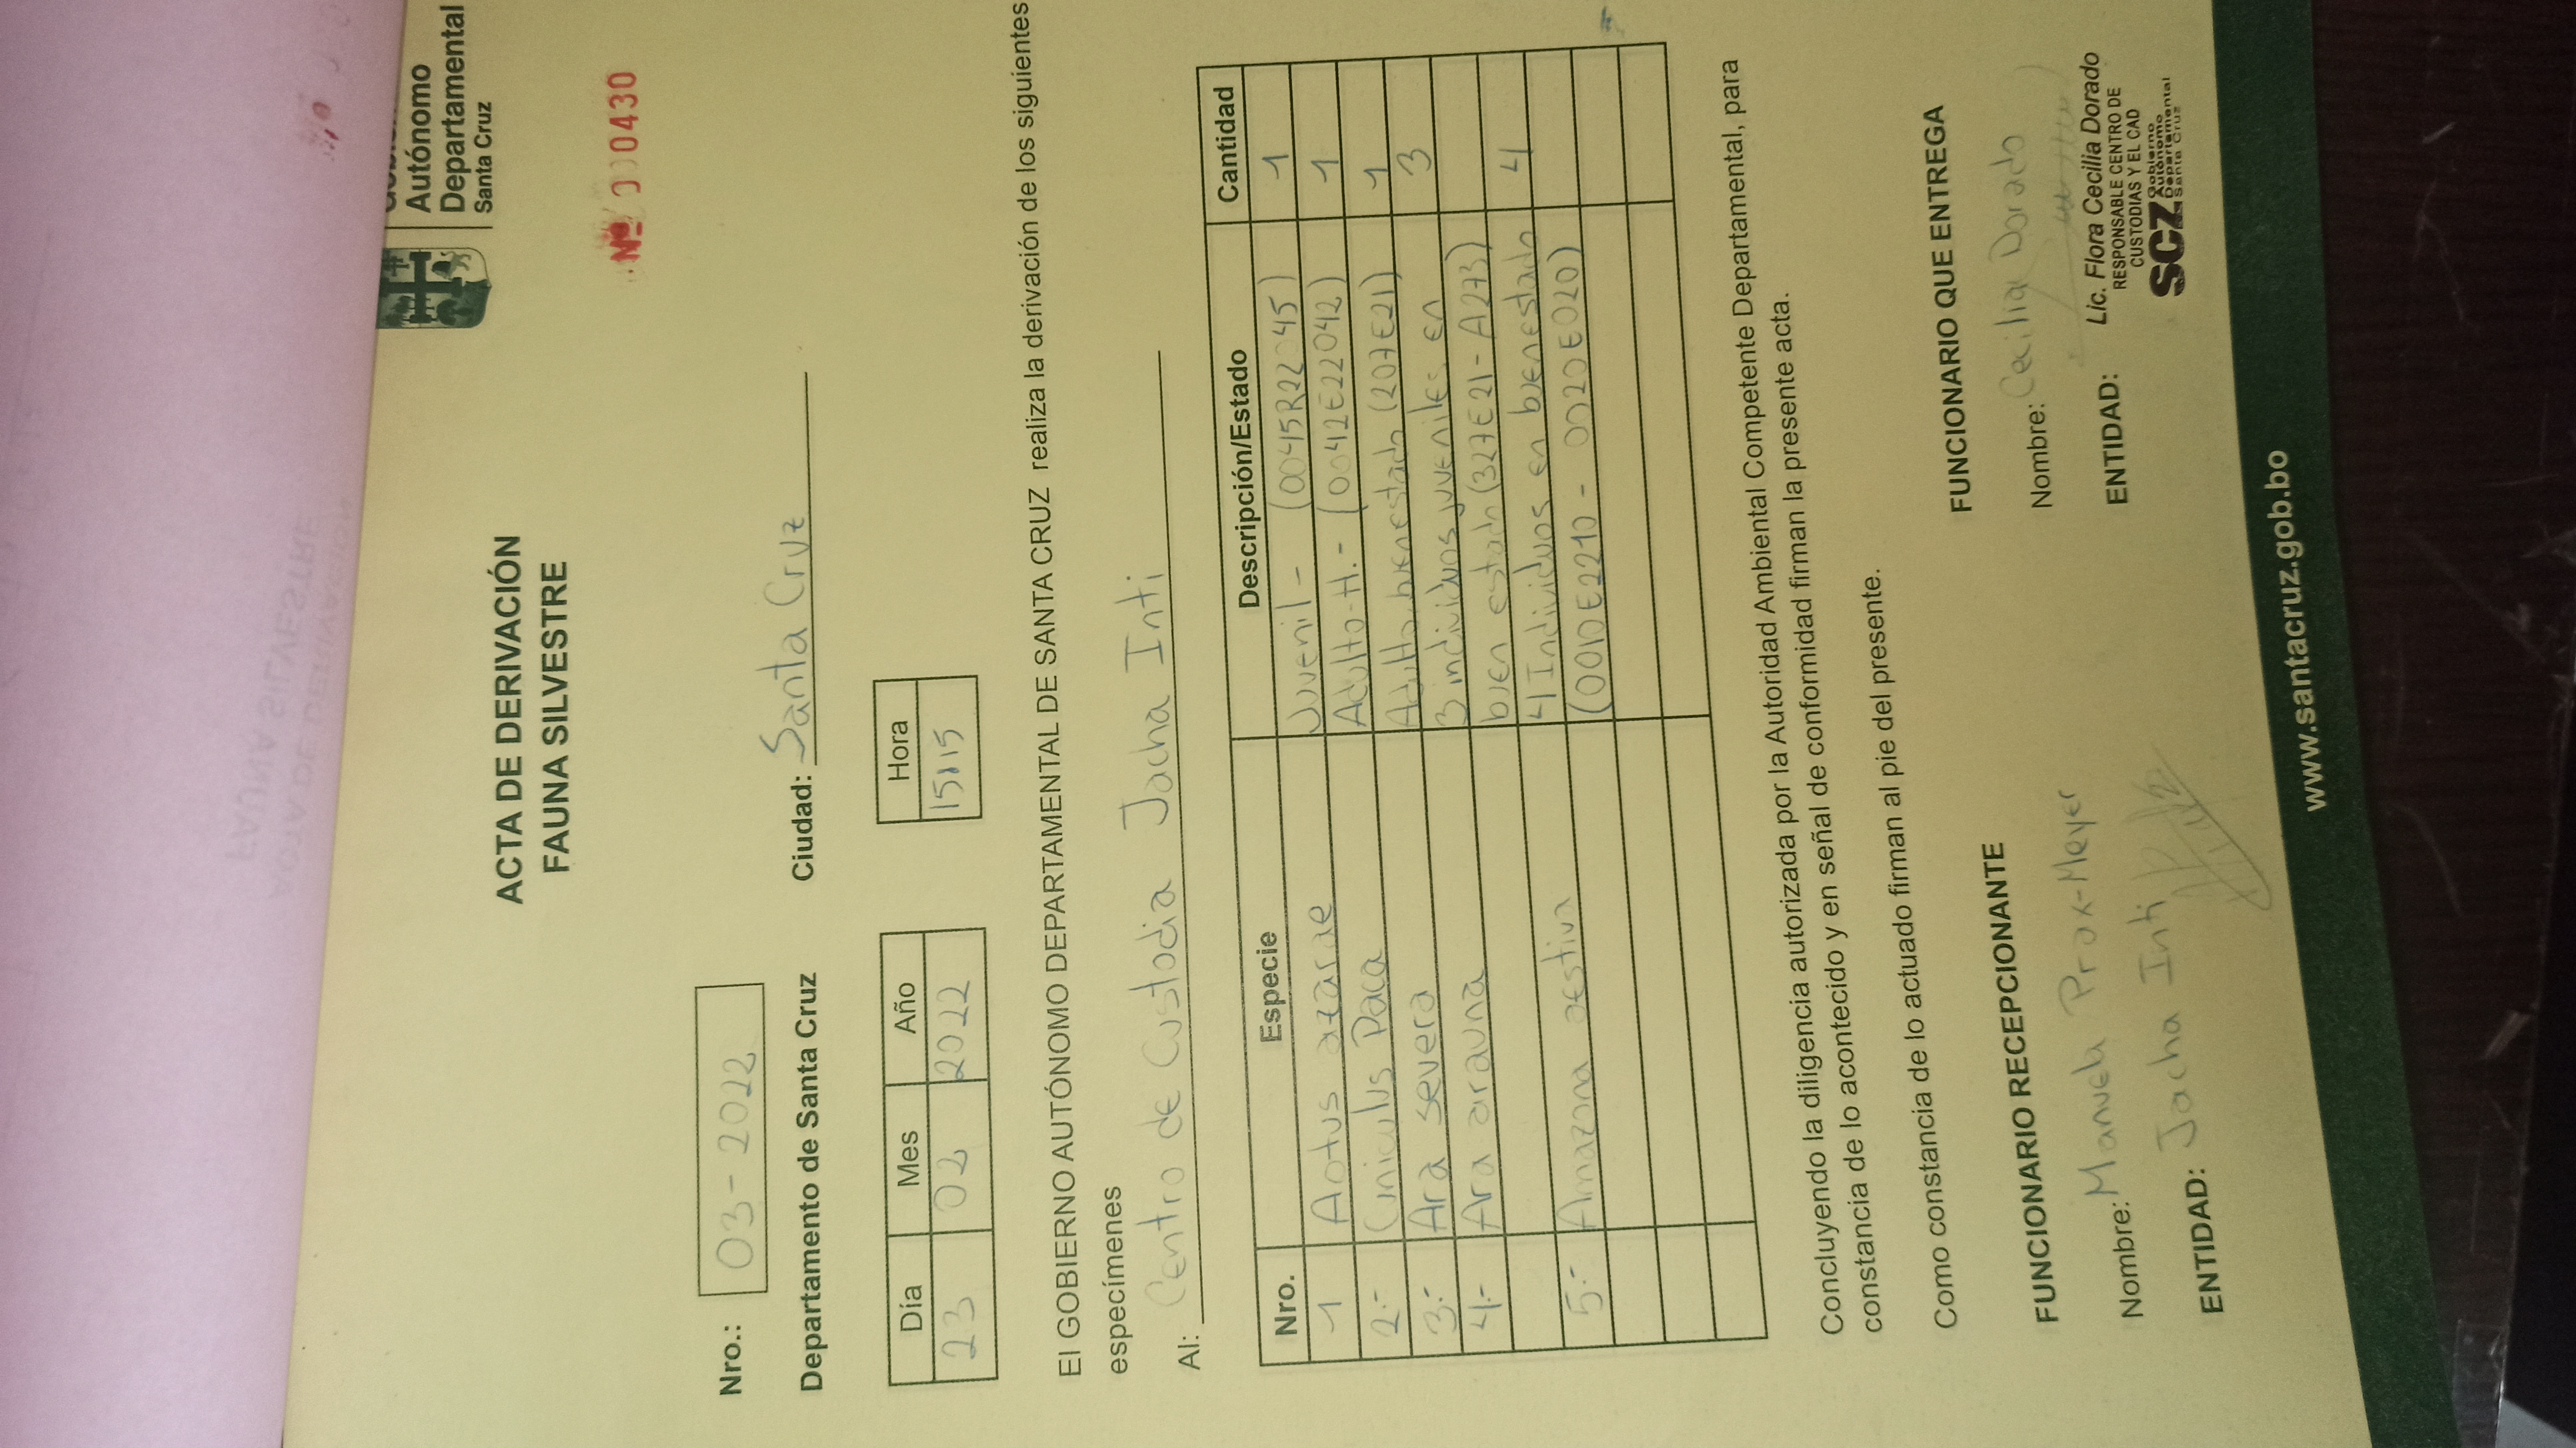 Autónomo
Departamental
Santa Cruz
ACTA DE DERIVACIÓN
FAUNA SILVESTRE
Nº 000430
Nro.: 03-2022
Departamento de Santa Cruz Ciudad: Santa Cruz
Día Mes Año Hora
23 02 2022 15:15
El GOBIERNO AUTÓNOMO DEPARTAMENTAL DE SANTA CRUZ realiza la derivación de los siguientes
especímenes
Al: Centro de Custodia Jacha Inti
Nro. Especie Descripción/Estado Cantidad
1 Aotus azarae Juvenil - (0045R22045) 1
2.- Cuniculus Paca Adulto-H.- (0042E22042) 1
3.- Ara severa Adulto bien estado (207E21) 1
4.- Ara arauna 3 individuos juveniles en 3
bien estado (327E21-A273)
5.- Amazona aestiva 4 Individuos en bien estado 4
(0010E2210 - 0020E020)
Concluyendo la diligencia autorizada por la Autoridad Ambiental Competente Departamental, para
constancia de lo acontecido y en señal de conformidad firman la presente acta.
Como constancia de lo actuado firman al pie del presente.
FUNCIONARIO RECEPCIONANTE
Nombre: Manuela Prox-Meyer
ENTIDAD: Jacha Inti
FUNCIONARIO QUE ENTREGA
Nombre: Cecilia Dorado
ENTIDAD:
Lic. Flora Cecilia Dorado
RESPONSABLE CENTRO DE
CUSTODIAS Y EL CAD
SCZ Gobierno
Autónomo
Departamental
Santa Cruz
www.santacruz.gob.bo